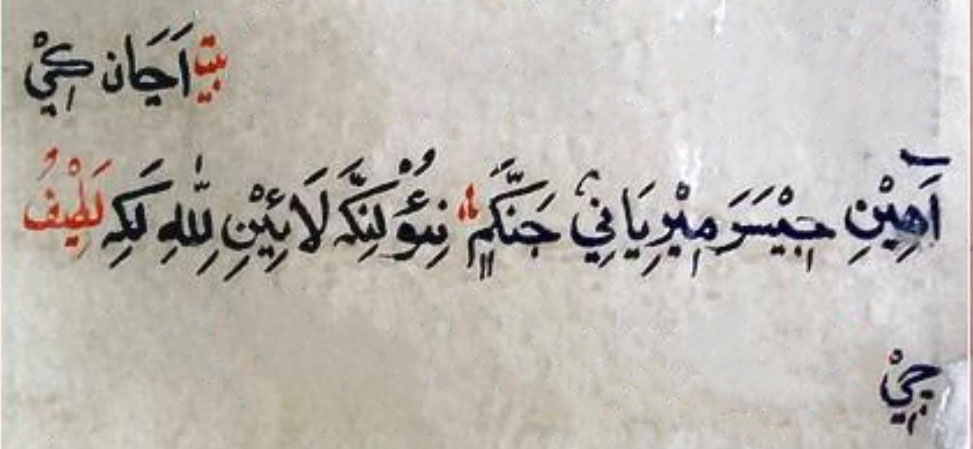 بيت اَڃَان ڪِيْ
آمِيْنِ جِيْسَرَ مِيْرِيَانِيْ جَنكَّمٍ نِئُوْ لِنكَّہ لَائِيْنِ لِلّٰهِ لَكِہ لَطِيْفُ
چِيْ